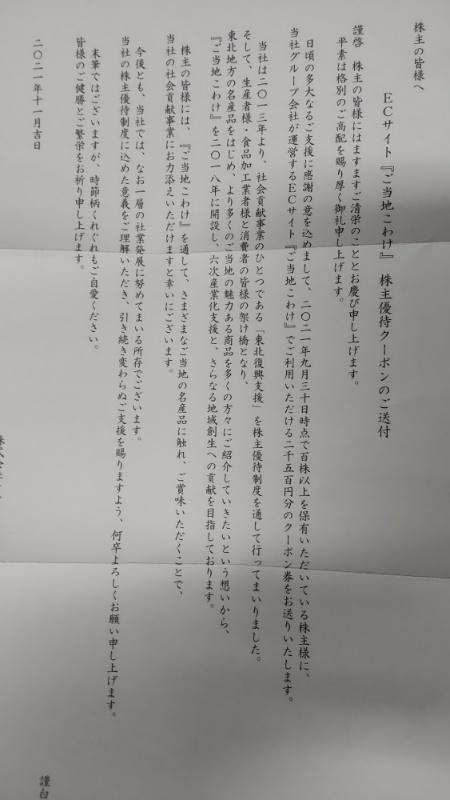 株主の皆様へ
ECサイト『ご当地こわけ』 株主優待クーポンのご送付
謹啓 株主の皆様にはますますご清栄のこととお慶び申し上げます。
平素は格別のご高配を賜り厚く御礼申し上げます。
日頃の多大なるご支援に感謝の意を込めまして、二〇二一年九月三十日時点で百株以上を保有いただいている株主様に、
当社グループ会社が運営するECサイト『ご当地こわけ』でご利用いただける二千五百円分のクーポン券をお送りいたします。
当社は二〇一三年より、社会貢献事業のひとつである「東北復興支援」を株主優待制度を通して行ってまいりました。
そして、生産者様・食品加工業者様と消費者の皆様の架け橋となり、
東北地方の名産品をはじめ、より多くのご当地の魅力ある商品を多くの方々にご紹介していきたいという想いから、
『ご当地こわけ』を二〇一八年に開設し、六次産業化支援と、さらなる地域創生への貢献を目指しております。
株主の皆様には、『ご当地こわけ』を通して、さまざまなご当地の名産品に触れ、ご賞味いただくことで、
当社の社会貢献事業にお力添えいただけますと幸いにございます。
今後とも、当社では、なお一層の社業発展に努めてまいる所存でございます。
当社の株主優待制度に込めた意義をご理解いただき、引き続き変わらぬご支援を賜りますよう、何卒よろしくお願い申し上げます。
末筆ではございますが、時節柄くれぐれもご自愛ください。
皆様のご健勝とご繁栄をお祈り申し上げます。
謹白
二〇二一年十一月吉日